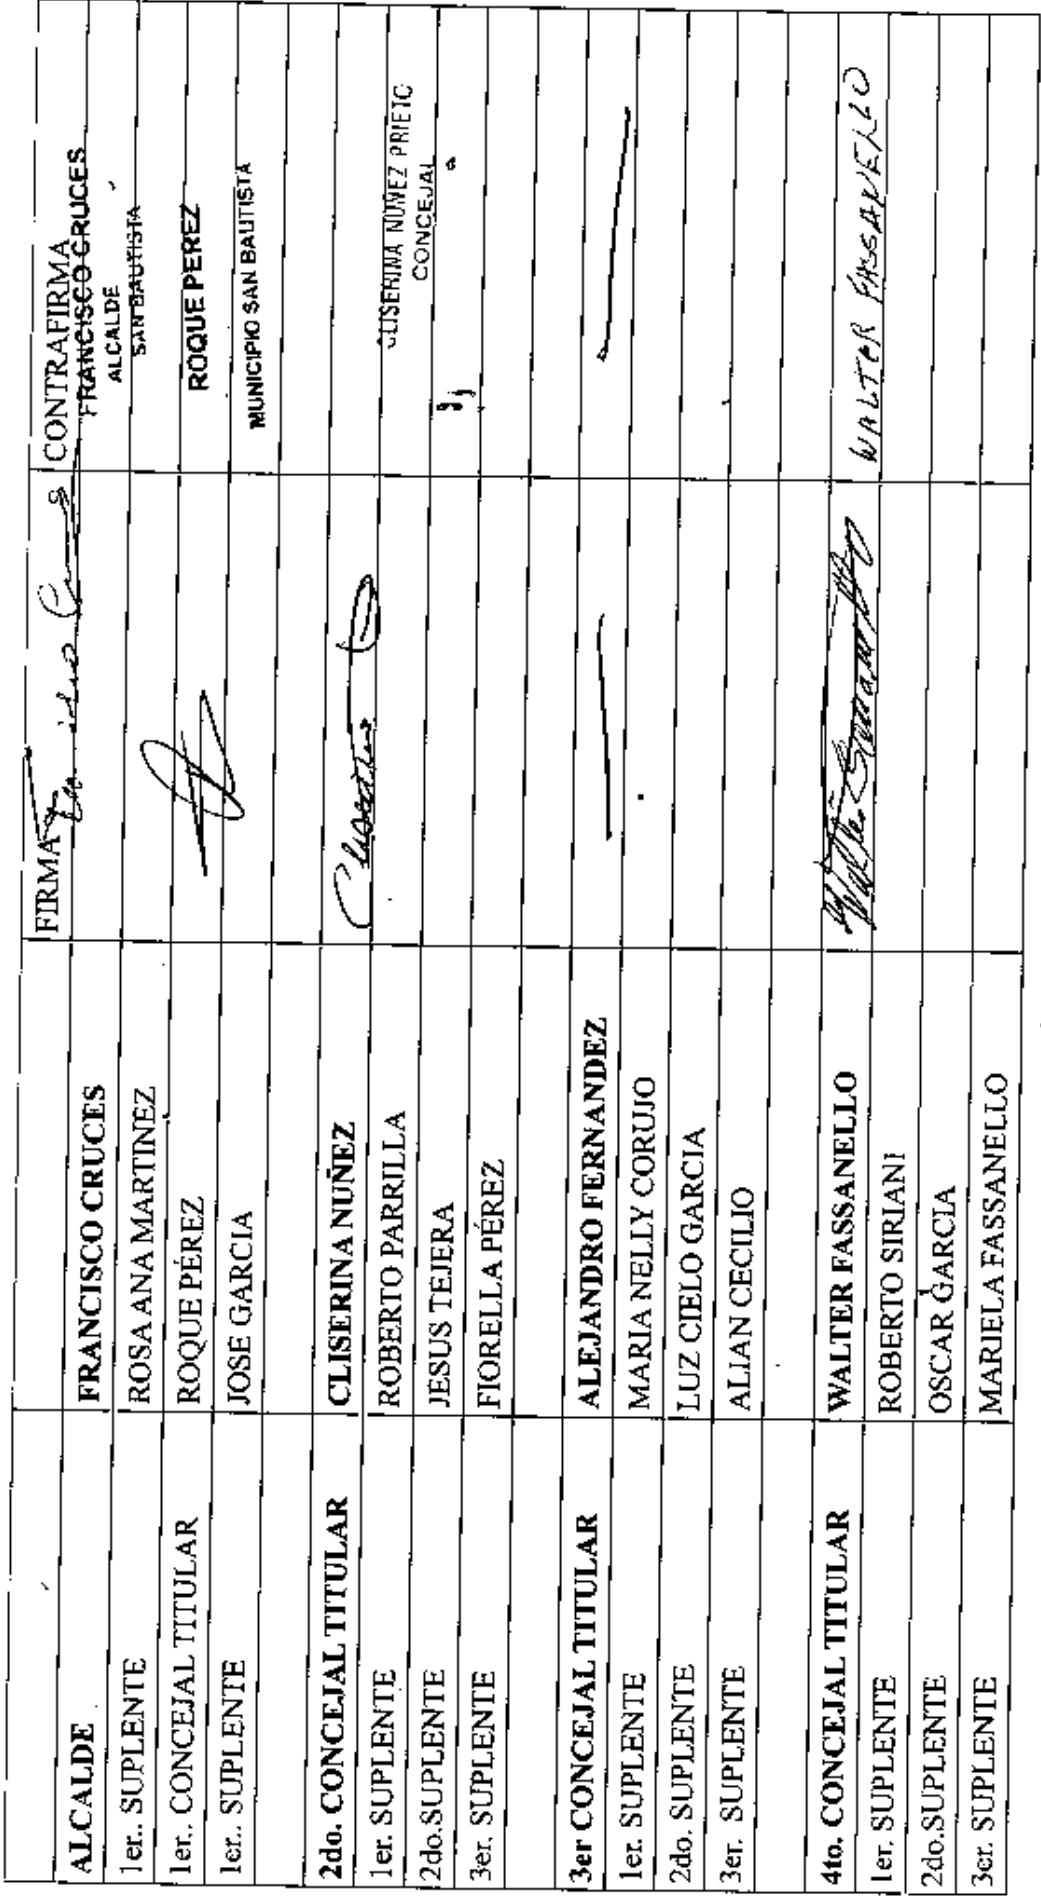 FIRMA CONTRAFIRMA
ALCALDE FRANCISCO CRUCES FRANCISCO CRUCES
ALCALDE
1er.. SUPLENTE ROSA ANA MARTINEZ SAN BAUTISTA
1er.. CONCEJAL TITULAR ROQUE PÉREZ ROQUE PEREZ
1er.. SUPLENTE JOSE GARCIA MUNICIPIO SAN BAUTISTA
2do. CONCEJAL TITULAR CLISERINA NUÑEZ
1er. SUPLENTE ROBERTO PARRILLA CLISERINA NUÑEZ PRIETO
2do.SUPLENTE JESUS TEJERA CONCEJAL
3er. SUPLENTE FIORELLA PÉREZ
3er CONCEJAL TITULAR ALEJANDRO FERNANDEZ
1er. SUPLENTE MARIA NELLY CORUJO
2do. SUPLENTE LUZ CIELO GARCIA
3er. SUPLENTE ALIAN CECILIO
4to. CONCEJAL TITULAR WALTER FASSANELLO WALTER FASSANELLO
1er. SUPLENTE ROBERTO SIRIANI
2do.SUPLENTE OSCAR GARCIA
3er. SUPLENTE MARIELA FASSANELLO